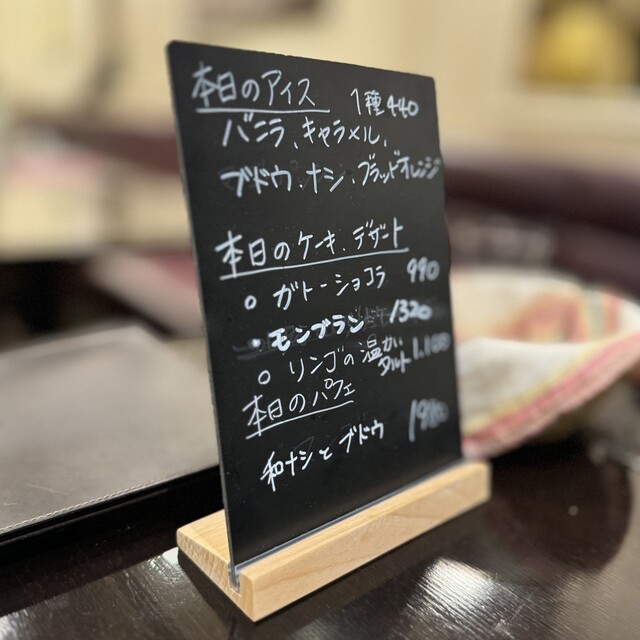 本日のアイス 1種440
バニラ、キャラメル、
ブドウ、ナシ、ブラッドオレンジ
本日のケーキ、デザート
○ ガトーショコラ 990
・モンブラン 1320
○ リンゴの温かい
タルト 1,100
本日のパフェ
和ナシとブドウ